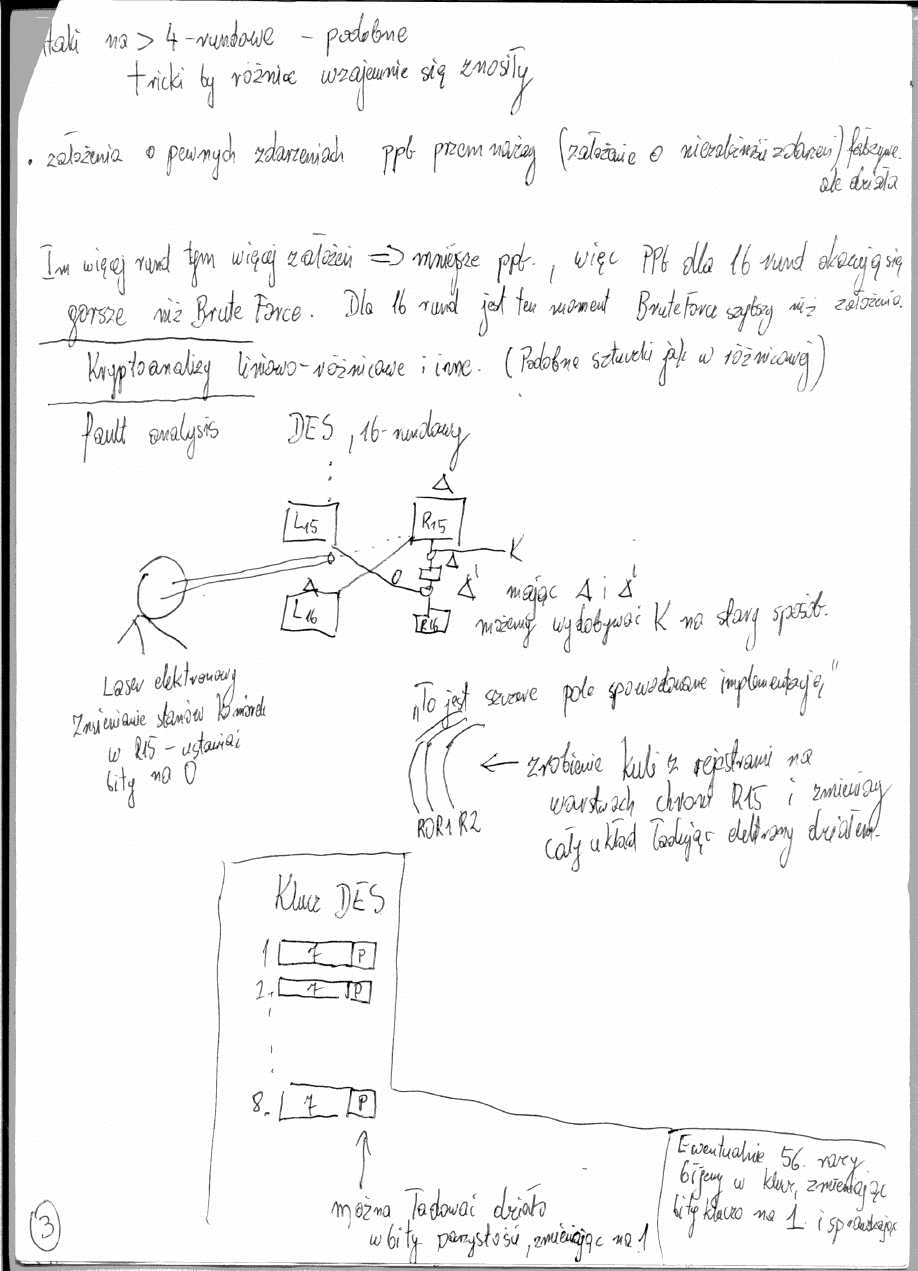 taki na > 4-rundowe - podobne
tricki by różnice wzajemnie się znosiły
• założenia o pewnych zdarzeniach ppb przemnażay (założenie o niezależności zdarzeń) fałszywe
ale działa
Im więcej rund tym więcej założeń => mniejsze ppb., więc PPb dla 16 rund okazują się
gorsze niż Brute Force. Dla 16 rund jest ten moment Brute Force szybszy niż założenia.
Kryptoanalizy liniowo-różnicowe i inne. (Podobne sztuczki jak w różnicowej)
fault analysis DES, 16-rundowy
Δ
L15 R15
K
Δ
0
Δ L16 R16 Δ'
mając Δ i Δ'
możemy wydobywać K na stary sposób.
Laser elektronowy
Zmienianie stanów komórek
w R15 - ustawiać
bity na 0
„To jest szczere pole spowodowane implementacją"
← zrobienie kuli z rejestrami na
warstwach chroni R15 i zmieniay
cały układ ładując elektrony działem.
R0 R1 R2
Klucz DES
1 7 P
2. 7 P
8. 7 P
można ładować działo
w bity parzystości, zmieniając na 1
Ewentualnie 56 razy
bijemy w klucz, zmieniając
bity klucza na 1 i sprawdzając
3